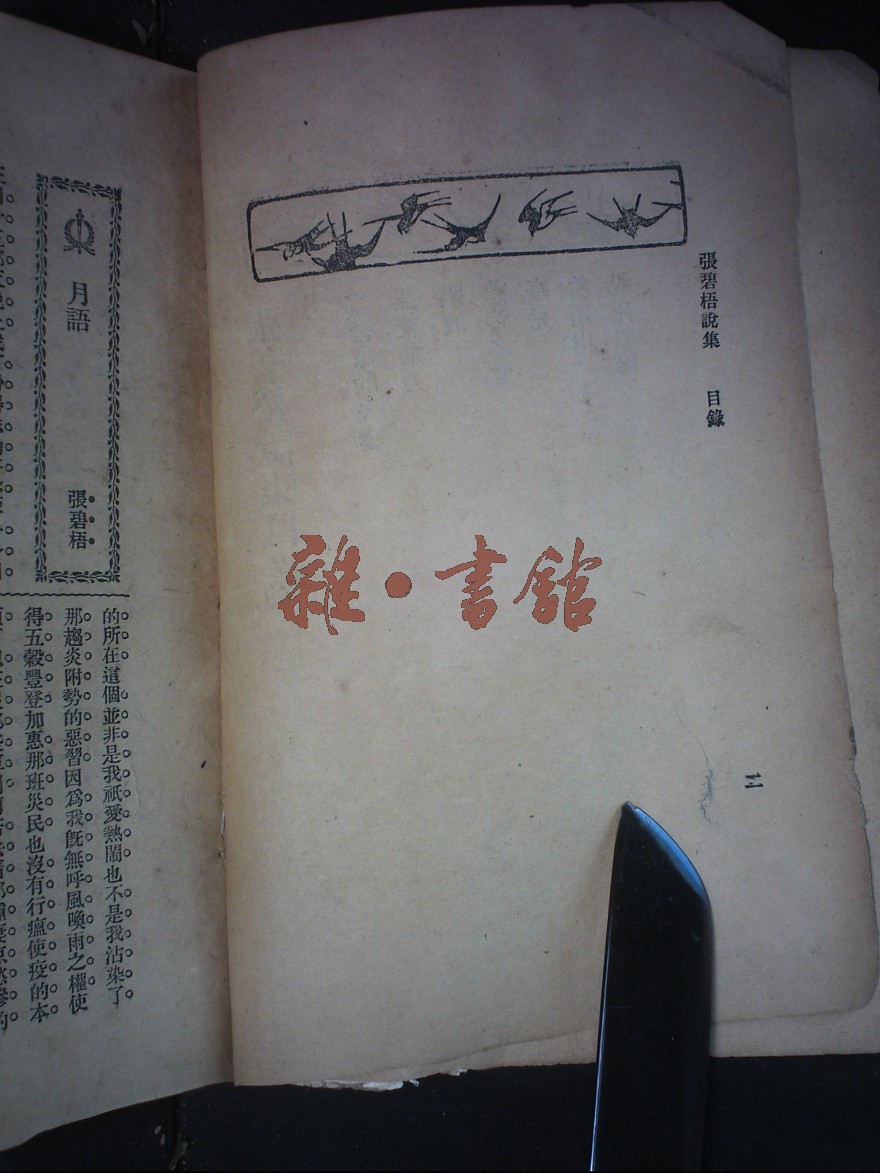 張碧梧說集　目錄
二
雜·書舘
月語
張碧梧
的所在這個並非是我祇愛熱鬧也不是我沾染了
那趨炎附勢的惡習因爲我旣無呼風喚雨之權使
得五穀豐登加惠那班災民也沒有行瘟使疫的本